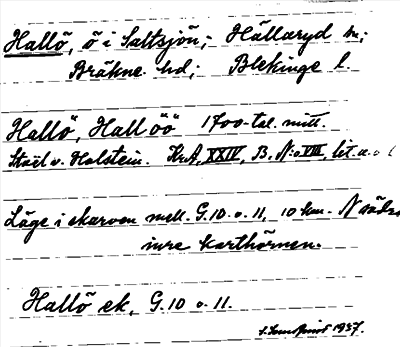 Hallö, ö i Saltsjön; Hällaryd sn;
Bräkne hd; Blekinge l.
Hallö, Hall öö 1700-tal. mitt.
Staël v. Holstein. KrA, XXIV, B. N:o VIII, lit. a.
Läge i skarven mell. G.10. o. 11, 10 km. N södra
inre karthörnen.
Hallö ek, G.10 o. 11.
1937.